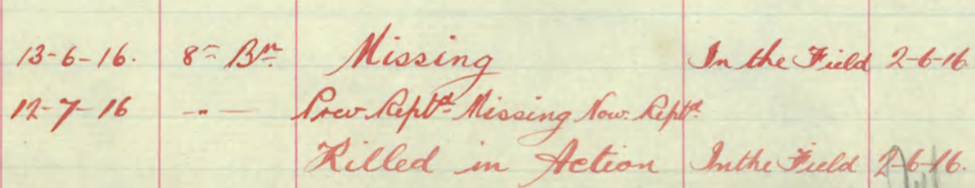 13-6-16. 8th Bn. Missing In the Field 2-6-16
12-7-16 -"- Prev. Rept'd Missing Now Rept'd
Killed in Action In the Field 2-6-16.